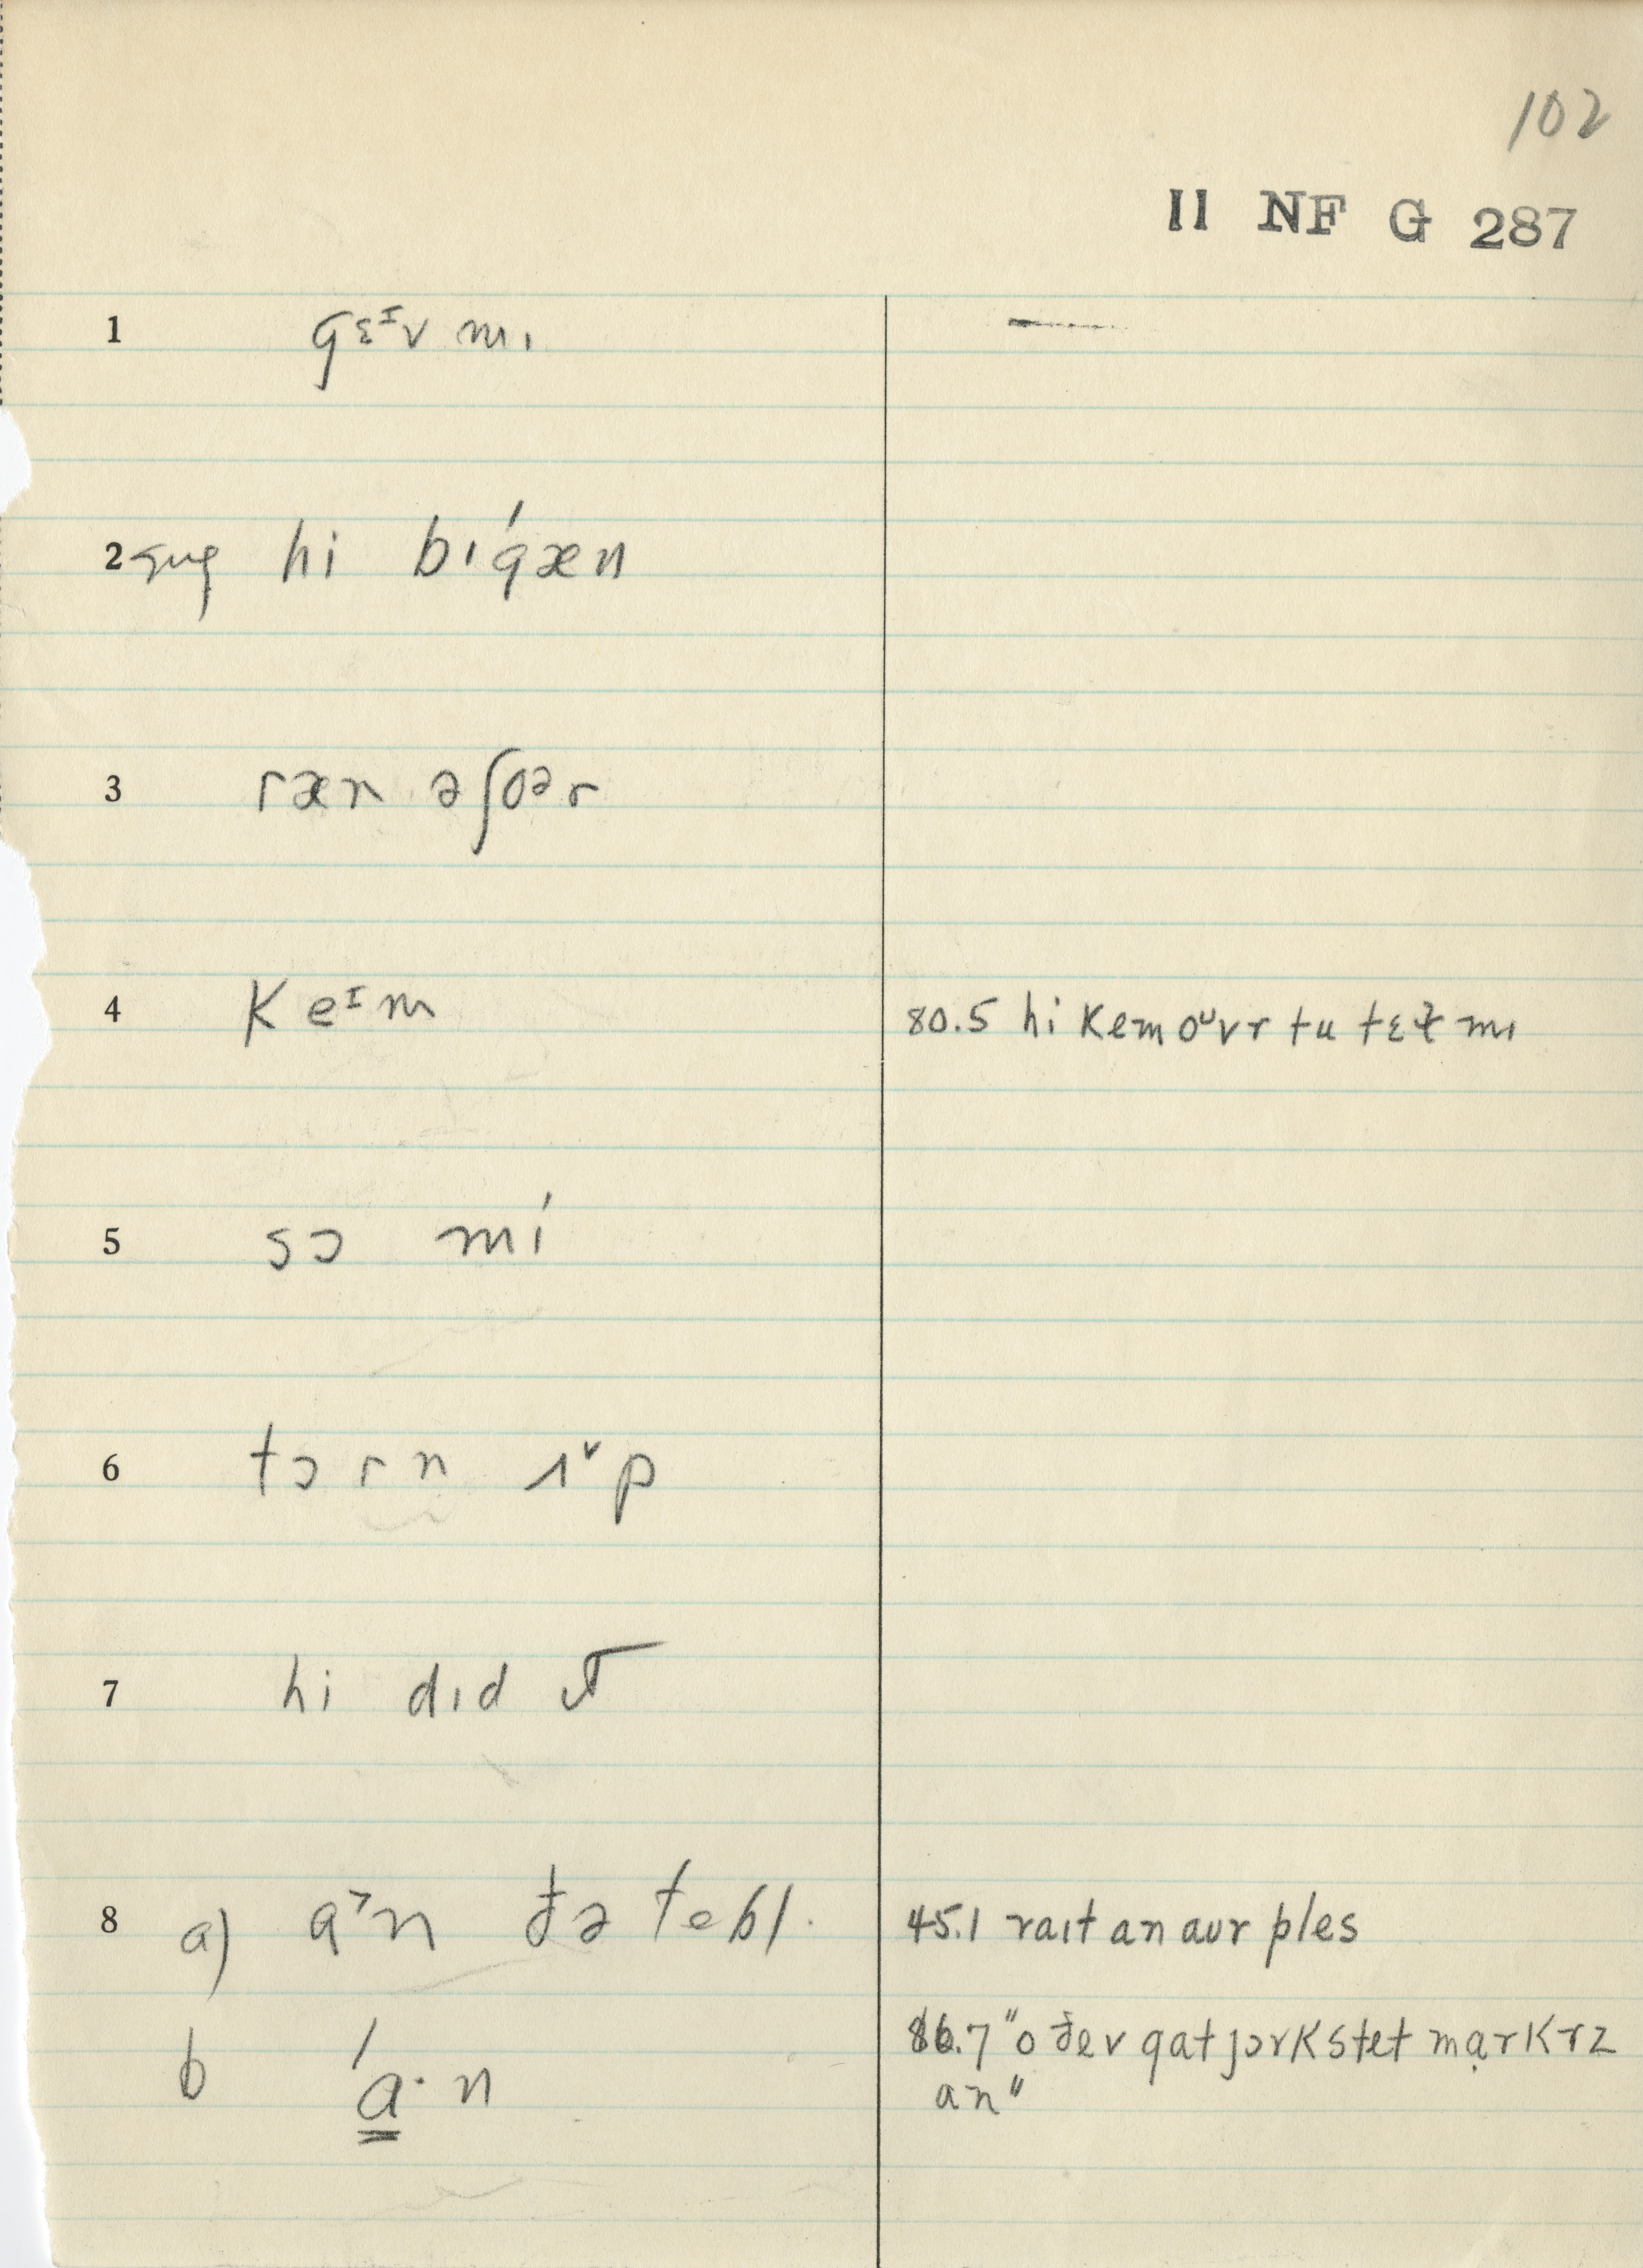 102
11 NF G 287
1 gɛᴵv mɪ
2 sug hi bɪgǽn
3 ræn əʃoᵊr
4 keᴵm 80.5 hi kem oᵁvr tu tɛɫ mɪ
5 sɔ mí
6 tɔrn ʌᵛp
7 hi dɪd ɪt
8 a) a˃n ðə tebl. 45.1 raɪt an aʊr ples
86.7 "o ðev gat jɔrk stet mạrkrz
b 'a̳· n an"